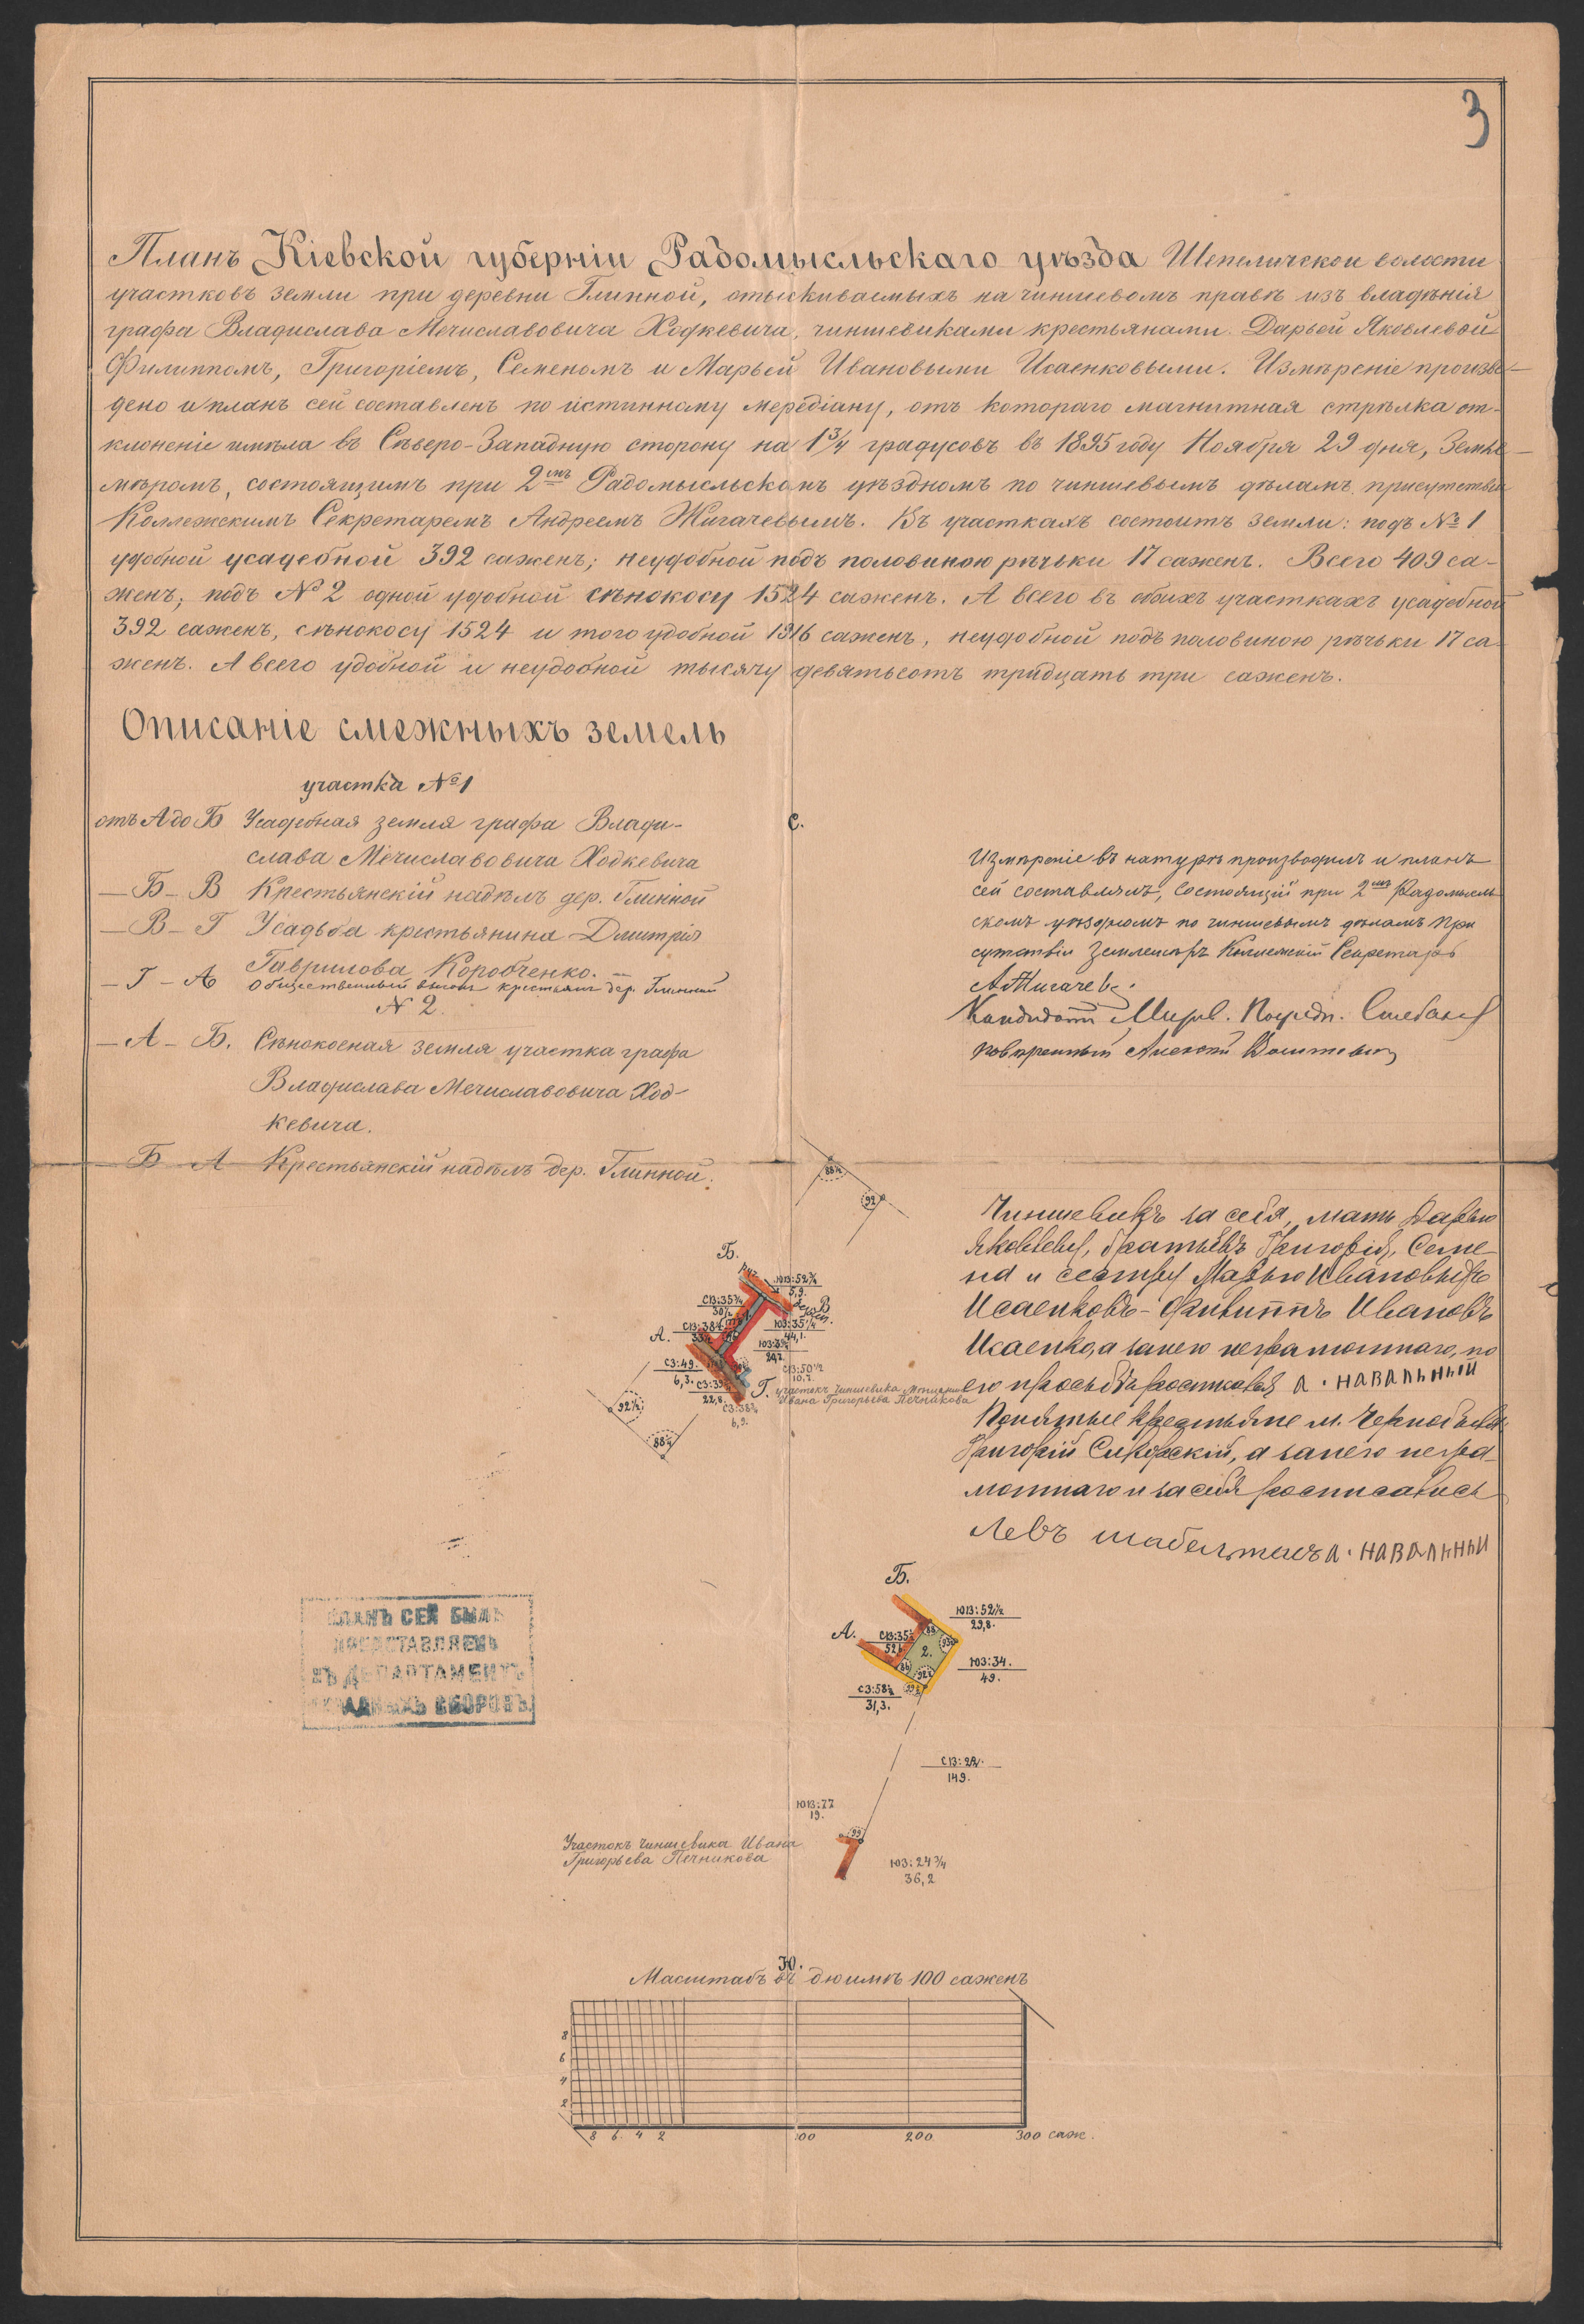 3
Планъ Кіевской губерніи Радомысльскаго уѣзда Шепеличской волости
участковъ земли при деревни Глинной, отыскиваемыхъ на чиншевомъ правѣ изъ владѣнія
графа Владислава Мечиславовича Ходкевича, чиншевиками крестьянами Дарьей Яковлевой
Филиппомъ, Григоріемъ, Семеномъ и Марьей Ивановыми Исаенковыми. Измѣреніе произве-
дено и планъ сей составленъ по истинному меридіану, отъ котораго магнитная стрѣлка от-
клоненіе имѣла въ Сѣверо-Западную сторону на 1¾ градусовъ въ 1895 году Ноября 29 дня, Земле-
мѣромъ, состоящимъ при 2мъ Радомысльскомъ уѣздномъ по чиншевымъ дѣламъ присутствіи
Коллежскимъ Секретаремъ Андреемъ Жигачевымъ. Въ участкахъ состоитъ земли: подъ № 1
удобной усадебной 392 саженъ; неудобной подъ половиною рѣчьки 17 саженъ. Всего 409 са-
женъ; подъ № 2 одной удобной сѣнокосу 1524 саженъ. А всего въ обѣихъ участкахъ усадебной
392 саженъ, сѣнокосу 1524 и того удобной 1916 саженъ, неудобной подъ половиною рѣчьки 17 са-
женъ. А всего удобной и неудобной тысячу девятьсотъ тридцать три саженъ.
Описаніе смежныхъ земель
участка № 1
отъ А до Б Усадебная земля графа Влади-
слава Мечиславовича Ходкевича
— Б — В Крестьянскій надѣлъ дер. Глинной
— В — Г Усадьба крестьянина Дмитрія
Гаврилова Коробченко.
— Г — А Общественный выгонъ крестьянъ дер. Глинной
№ 2.
— А — Б. Сѣнокосная земля участка графа
Владислава Мечиславовича Ход-
кевича.
Б А Крестьянскій надѣлъ дер. Глинной.
С.
Измѣреніе въ натурѣ производилъ и планъ
сей составлялъ, состоящій при 2мъ Радомысль
скомъ уѣздномъ по чиншевымъ дѣламъ При
сутствіи Землемѣръ Коллежскій Секретарь
А Жигачевъ.
Кандидатъ Миров. Посредн.
повѣренный Алексѣй
Чиншевикъ за себя, мать Дарью
Яковлеву, братьевъ Григорія, Семе-
на и сестру Марью Ивановыхъ
Исаенковъ - Филиппъ Ивановъ
Исаенко, а за него неграмотнаго, по
его просьбѣ росписался А. НАВАЛЬНЫЙ
Понятые крестьяне м. Чернобыля
Григорій Сикорскій, а за него негра-
мотнаго и за себя росписались
Левъ А. НАВАЛЬНЫЙ
88¼
92
Б.
ЮВ:52¾
5,9.
СВ:35¾
30½
В
А.
СВ:38¼
33½
ЮЗ:35¼
44,1.
СЗ:49.
6,3.
СВ:50½
10,7.
22,8.
Г.
Участокъ Чиншевика
Ивана Григорьева Печникова
6,9.
92½
88¼
Б.
ЮВ:52½
29,8.
А.
СВ:35½
52½
88
2.
ЮЗ:34.
49.
86
92½
СЗ:58½
31,3.
СВ:22.
149.
ЮВ:77
19.
99
Участокъ Чиншевика Ивана
Григорьева Печникова
ЮЗ:24¾
36,2
ПЛАНЪ СЕЙ БЫЛЪ
ПРЕДСТАВЛЯЕМЪ
ВЪ ДЕПАРТАМЕНТЪ
ОКЛАДНЫХЪ СБОРОВЪ.
Ю.
Масштабъ въ дюймѣ 100 саженъ
8
6
4
2
8 6 4 2 100 200 300 саж.